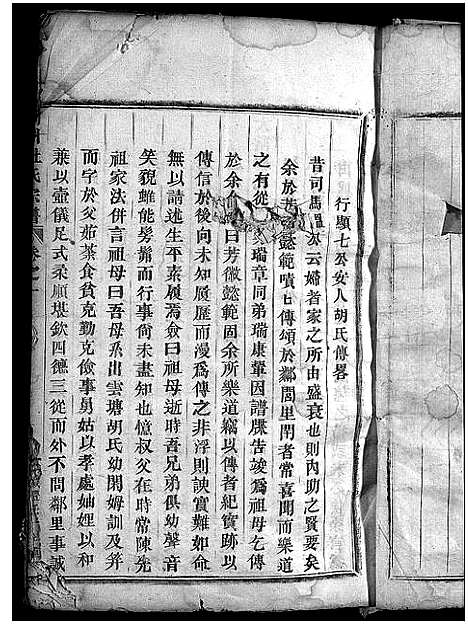 行顯七公安人胡氏傳畧
昔司馬溫公云婦者家之所由盛衰也則內助之賢要矣
余於芳懿範嘖嘖傳頌於鄰閭里閈者常喜聞而樂道
之有從瑞章同弟瑞康鞏因譜牒告竣為祖母乞傳
於余余曰芳徽懿範固余所樂道竊以傳者紀實跡以
傳信於後向未知履歷而漫為傳之非浮則諛實難如命
無以請述生平素履焉僉曰祖母逝時吾兄弟俱幼聲音
笑貌雖能髣髴而行事尙未盡知也憶叔父在時常陳先
祖家法併言祖母曰吾母系出雲塘胡氏幼閑姆訓及笄
而字於父茹荼食貧克勤克儉事舅姑以孝處妯娌以和
兼以壼儀足式柔順堪欽四德三從而外不問鄰里事誠
杜氏宗譜 卷之一